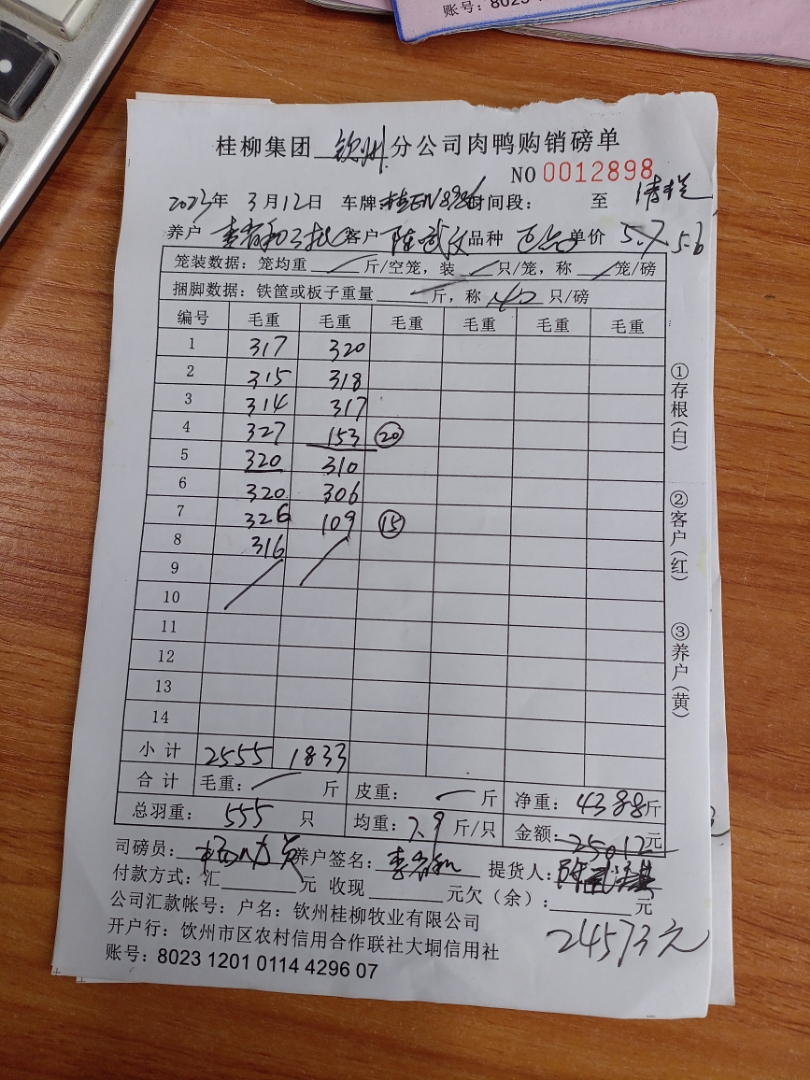 账号：8023
桂柳集团 钦州 分公司肉鸭购销磅单
NO 0012898
2023年 3月12日 车牌: 时间段： 至
养户 李有和 客户 陈武汉 品种 单价 5.7 5.6
笼装数据：笼均重 斤/空笼，装 只/笼，称 笼/磅
捆脚数据：铁筐或板子重量 斤，称 40 只/磅
编号 毛重 毛重 毛重 毛重 毛重 毛重
1 317 320
2 315 318
3 314 317
4 327 153 ⑳
5 320 310
6 320 306
7 326 109 ⑮
8 316
9
10
11
12
13
14
小计 2555 1833
合计 毛重： 斤 皮重： 斤 净重：4388斤
总羽重： 555 只 均重：7.9 斤/只 金额：25012元
司磅员： 养户签名： 李有和 提货人：
付款方式：汇 元 收现 元欠（余）： 元
公司汇款帐号：户名：钦州桂柳牧业有限公司
开户行：钦州市区农村信用合作联社大垌信用社
24573元
账号：8023 1201 0114 4296 07
①存根(白)
②客户(红)
③养户(黄)